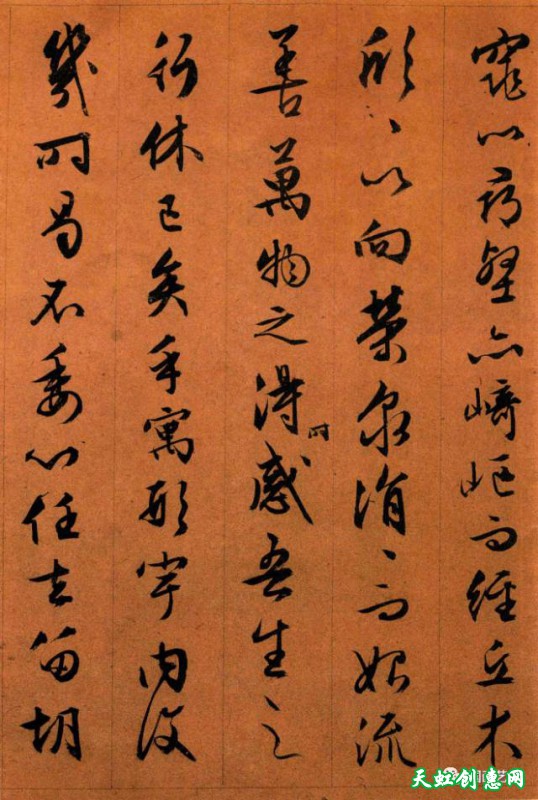 窕以尋壑亦崎嶇而經丘木
欣〻以向榮泉涓〻而始流
善萬物之得時感吾生之
行休已矣乎寓形宇內復
幾時曷不委心任去留胡
天虹创惠网